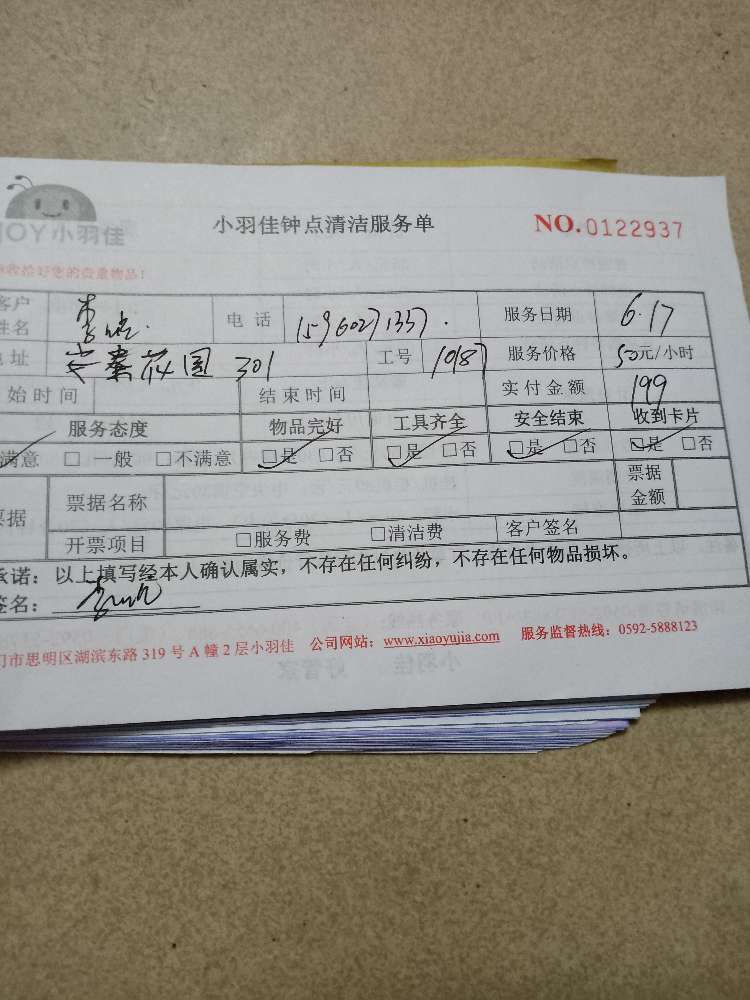 JOY小羽佳
小羽佳钟点清洁服务单
NO.0122937
收拾好您的贵重物品！
客户姓名 李 电话 15960271337. 服务日期 6.17
地址 安泰花园 301 工号 1087 服务价格 50元/小时
始时间 结束时间 实付金额 199
服务态度 物品完好 工具齐全 安全结束 收到卡片
满意 □一般 □不满意 □是 □否 □是 □否 □是 □否 □是 □否
票据 票据名称 票据金额
开票项目 □服务费 □清洁费 客户签名
承诺：以上填写经本人确认属实，不存在任何纠纷，不存在任何物品损坏。
签名：
门市思明区湖滨东路 319 号 A 幢 2 层小羽佳 公司网站：www.xiaoyujia.com 服务监督热线：0592-5888123